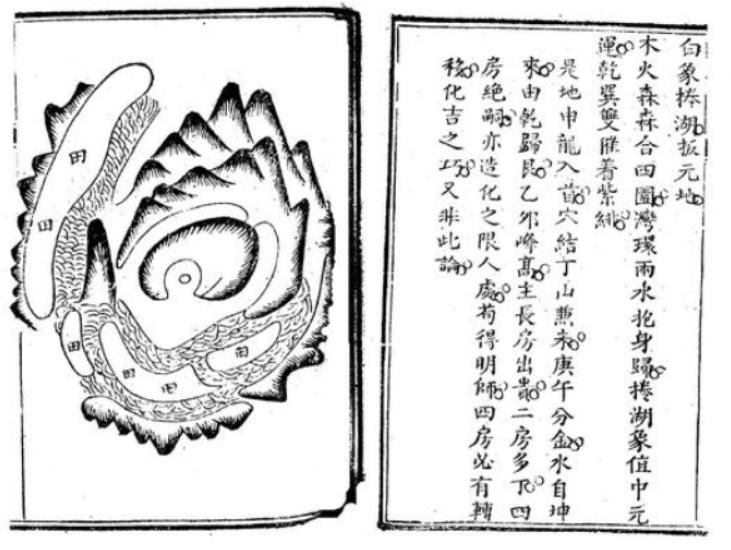 白象捲湖扳元地
木火森森合四圍灣環兩水抱身歸捲湖象值中元
運乾巽雙催着紫緋
是地申龍入首穴結丁山兼未庚午分金水自坤
來由乾歸艮乙卯峰高主長房出貴二房多丁四
房絕嗣亦造化之限人處苟得明師四房必有轉
移化吉之巧又非此論
田
田
田
田
田
田